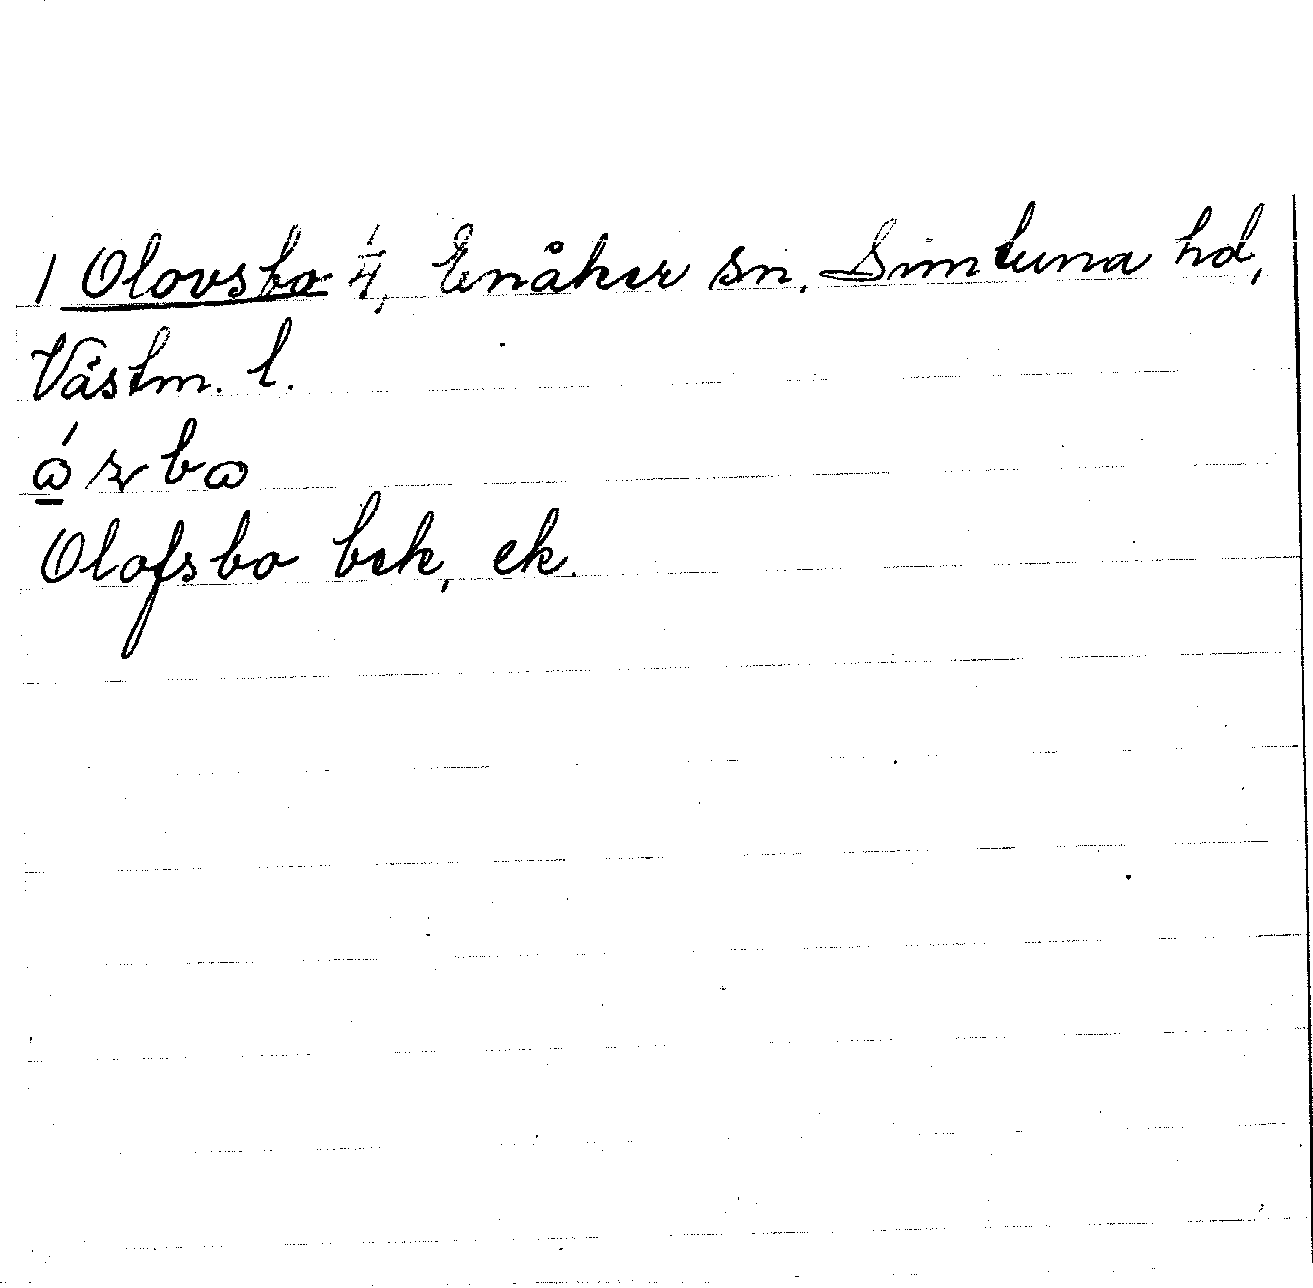 1 Olovsbo 1/4, Enåker sn. Simtuna hd,
Västm. l.
Olofsbo bek, ek.